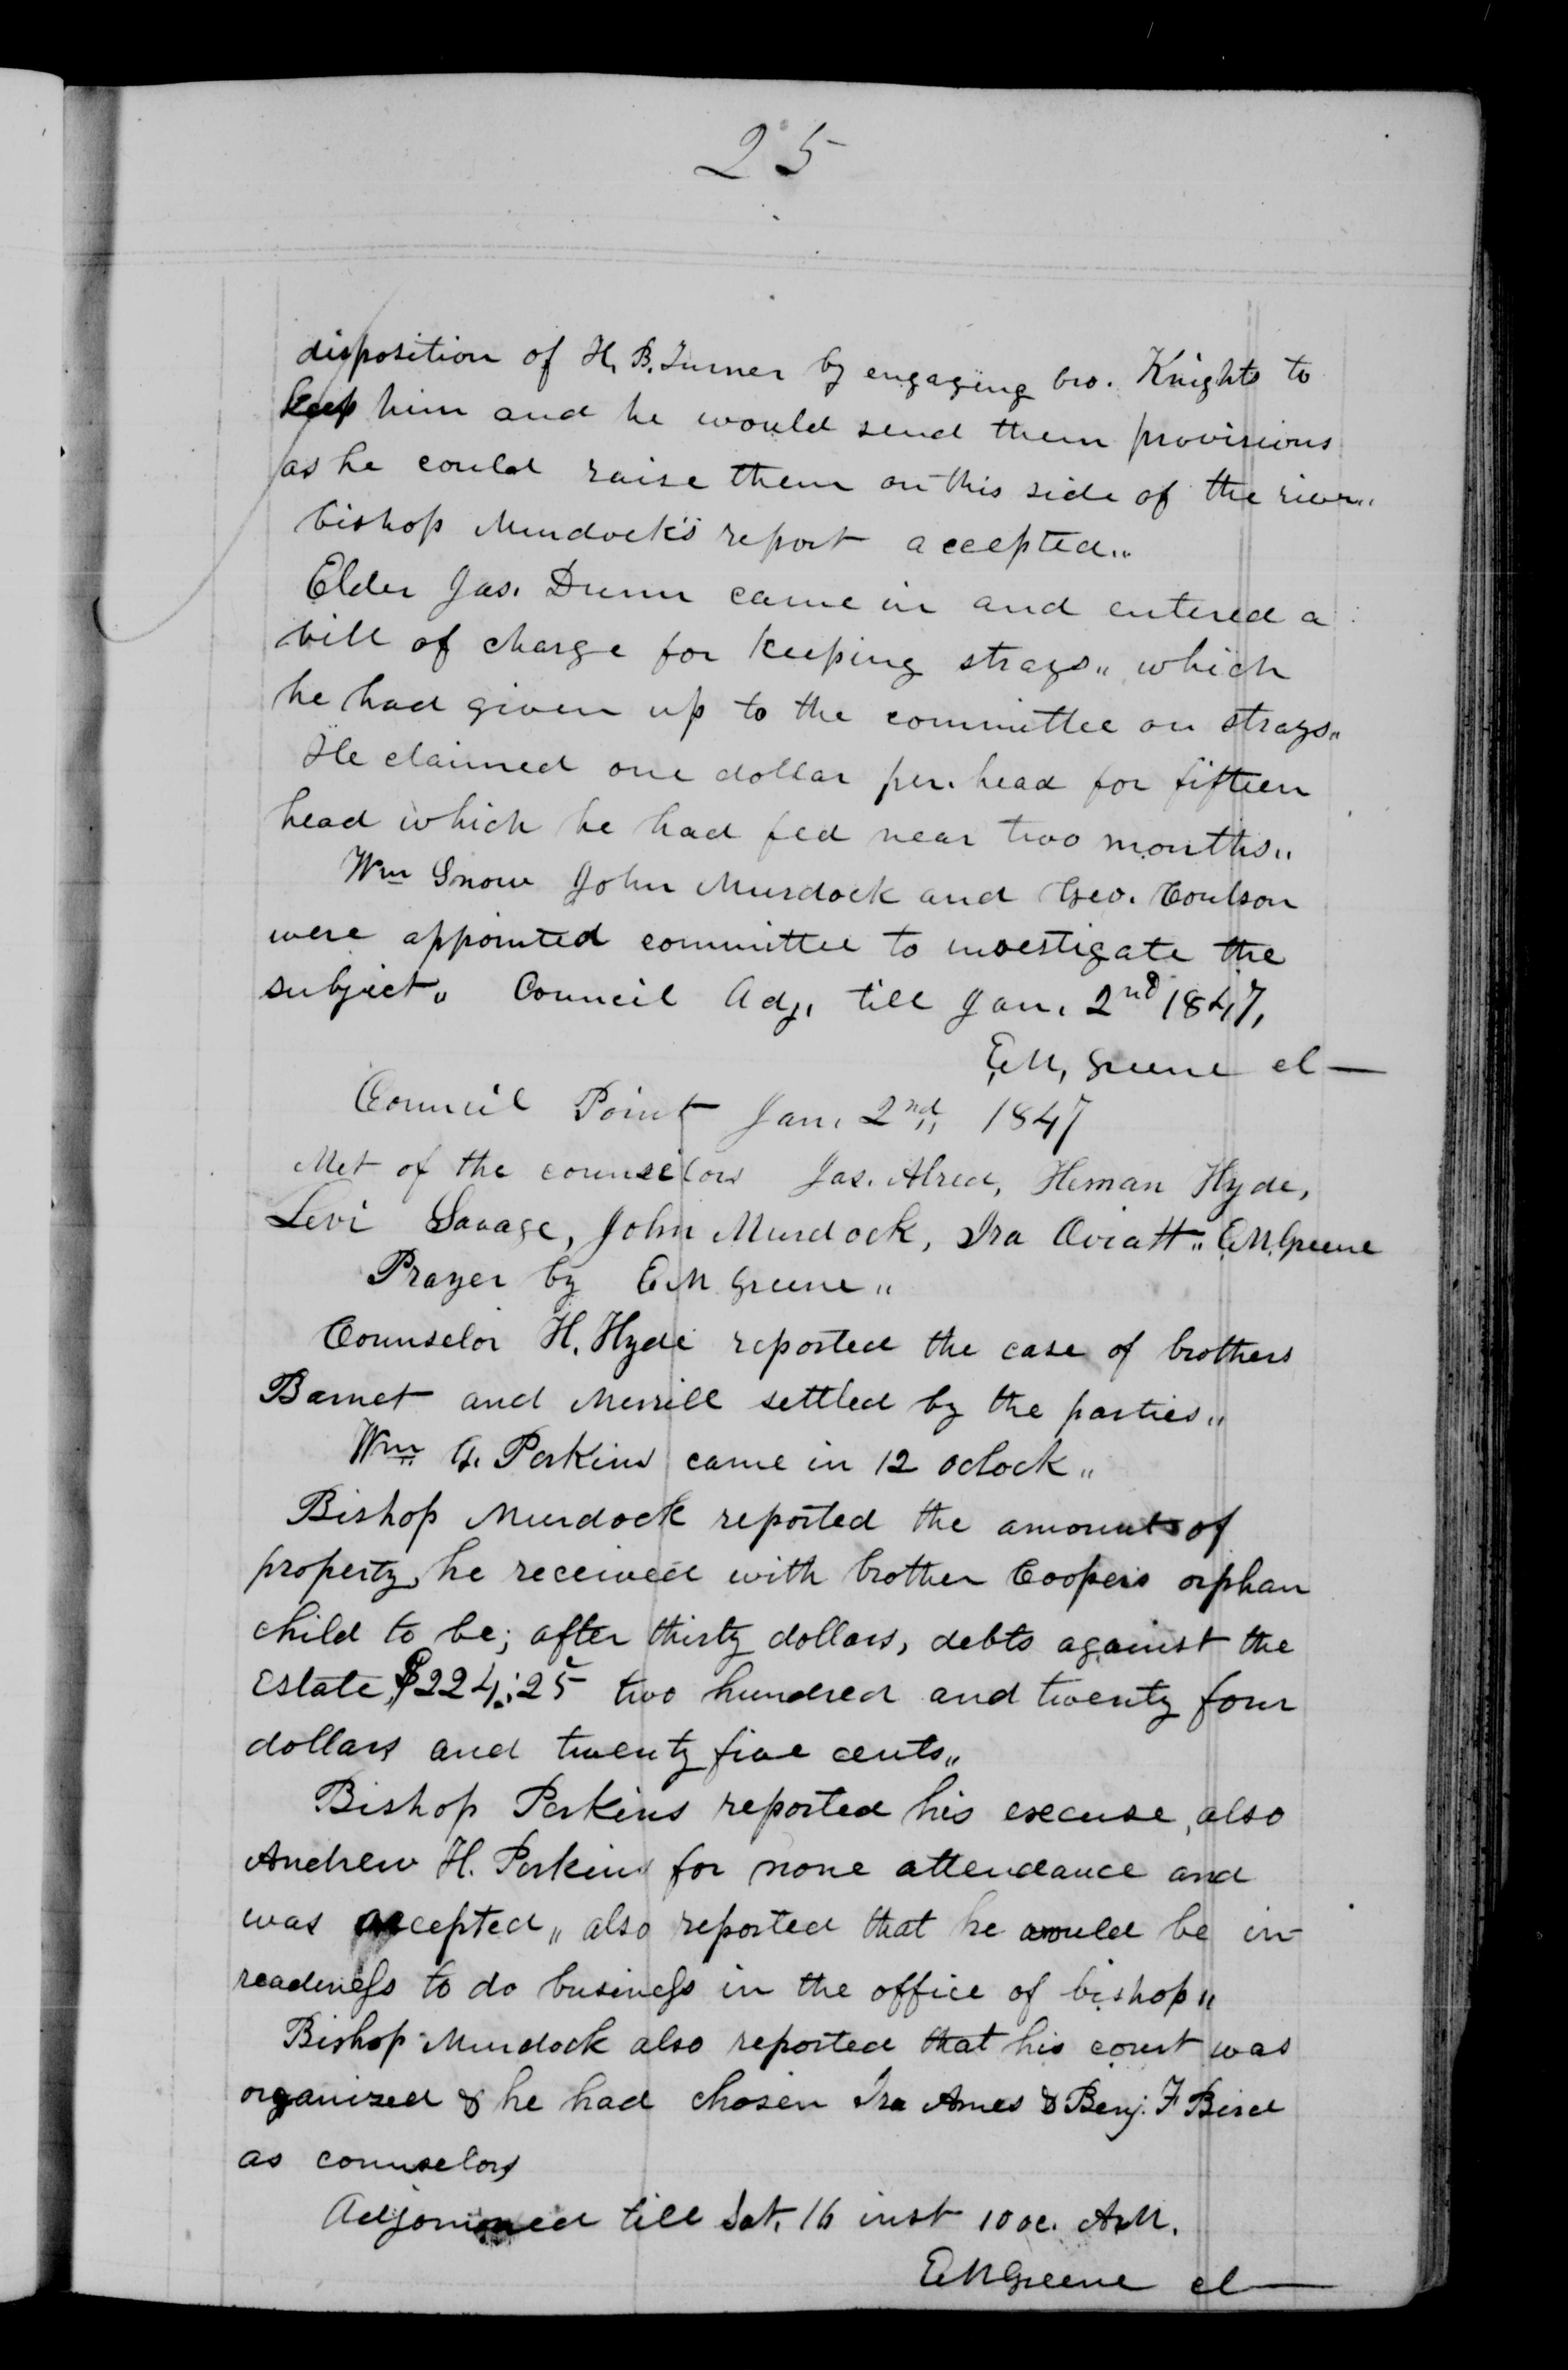 25
disposition of H, B. Turner by engaging bro. Knights to
keep him and he would send them provisions
as he could raise them on this side of the river"
bishop Murdock's report accepted"
Elder Jas. Dunn came in and entered a
bill of charge for keeping strays" which
he had given up to the committee on strays"
He claimed one dollar per. head for fifteen
head which he had fed near two months"
Wm Snow John Murdock and Geo. Coulson
were appointed committee to investigate the
subject" Council Adj. till Jan. 2nd 1847,
E,M, Greene cl—
Council Point Jan. 2nd, 1847
Met of the counselors Jas. Alred, Heman Hyde,
Levi Savage, John Murdock, Ira Oviatt" E.M. Greene
Prayer by E M Greene"
Counselor H. Hyde reported the case of brothers
Barnet and Merrill settled by the parties"
Wm G. Perkins came in 12 oclock"
Bishop Murdock reported the amount of
property he received with brother Coopers orphan
child to be; after thirty dollars, debts against the
Estate, $224:25 two hundred and twenty four
dollars and twenty five cents"
Bishop Perkins reported his excuse, also
Andrew H. Perkins for none attendance and
was accepted" also reported that he would be in
readiness to do business in the office of bishop"
Bishop Murdock also reported that his court was
organized & he had chosen Ira Ames & Benj. F Bird
as counselors
Adjourned till Sat. 16 inst 10 oc. A.M.
E M Greene cl—